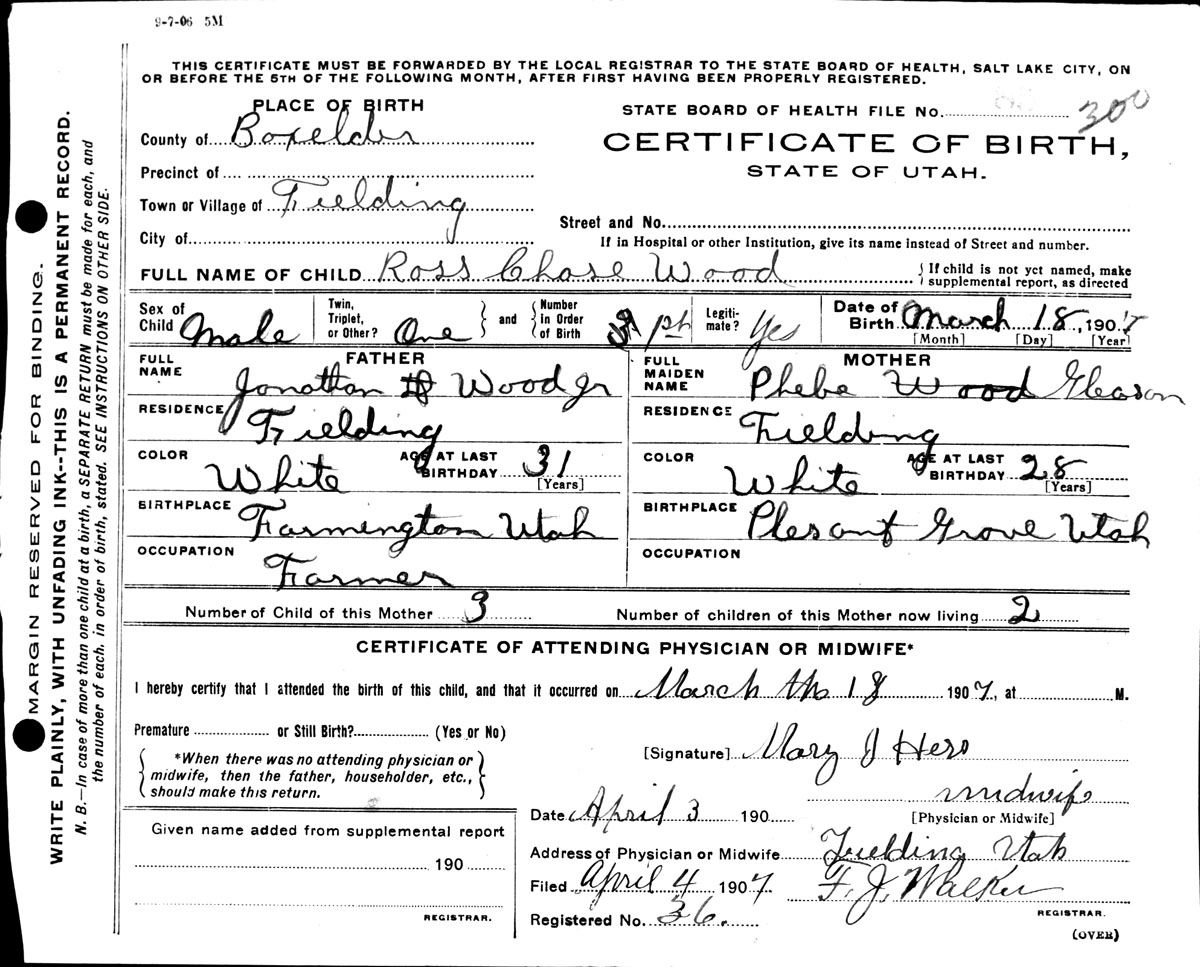 9-7-06 5M
THIS CERTIFICATE MUST BE FORWARDED BY THE LOCAL REGISTRAR TO THE STATE BOARD OF HEALTH, SALT LAKE CITY, ON
OR BEFORE THE 5TH OF THE FOLLOWING MONTH, AFTER FIRST HAVING BEEN PROPERLY REGISTERED.
MARGIN RESERVED FOR BINDING.
WRITE PLAINLY, WITH UNFADING INK--THIS IS A PERMANENT RECORD.
N. B.—In case of more than one child at a birth, a SEPARATE RETURN must be made for each, and
the number of each. in order of birth, stated. SEE INSTRUCTIONS ON OTHER SIDE.
PLACE OF BIRTH
County of Boxelder
Precinct of
Town or Village of Fielding
City of
STATE BOARD OF HEALTH FILE No. 300
CERTIFICATE OF BIRTH,
STATE OF UTAH.
Street and No.
If in Hospital or other Institution, give its name instead of Street and number.
FULL NAME OF CHILD Ross Chase Wood { If child is not yet named, make
supplemental report, as directed
Sex of Child Male
Twin, Triplet, or Other? One
and
Number in Order of Birth 1st
Legiti-mate? Yes
Date of Birth March 18, 1907
[Month] [Day] [Year]
FATHER
FULL NAME Jonathan Wood Jr
RESIDENCE Fielding
COLOR White AGE AT LAST BIRTHDAY 31
[Years]
BIRTHPLACE Farmington Utah
OCCUPATION Farmer
MOTHER
FULL MAIDEN NAME Phebe Wood Gleason
RESIDENCE Fielding
COLOR White AGE AT LAST BIRTHDAY 28
[Years]
BIRTHPLACE Plesant Grove Utah
OCCUPATION
Number of Child of this Mother 3 Number of children of this Mother now living 2
CERTIFICATE OF ATTENDING PHYSICIAN OR MIDWIFE*
I hereby certify that I attended the birth of this child, and that it occurred on March the 18 1907, at M.
Premature or Still Birth? (Yes or No)
*When there was no attending physician or
midwife, then the father, householder, etc.,
should make this return.
[Signature] Mary J Hess
midwife
[Physician or Midwife]
Date April 3 190
Address of Physician or Midwife Fielding Utah
Filed April 4 1907 F. J. Walker
REGISTRAR.
Registered No. 36.
(OVER)
Given name added from supplemental report
190
REGISTRAR.